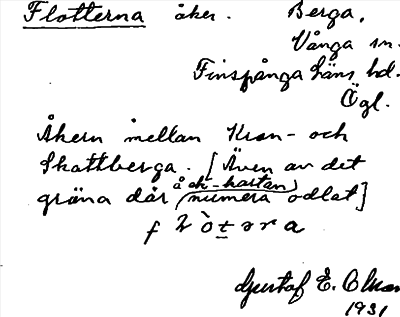 Flotterna åker. Berga,
Vånga sn.
Finspånga läns hd.
Ögl.
Åkern mellan Kron- och
Skattberga. [Även av det
å ek-kartan
gröna där (numera odlat]
f l ò t ə r a
Gustaf E. Olson
1931